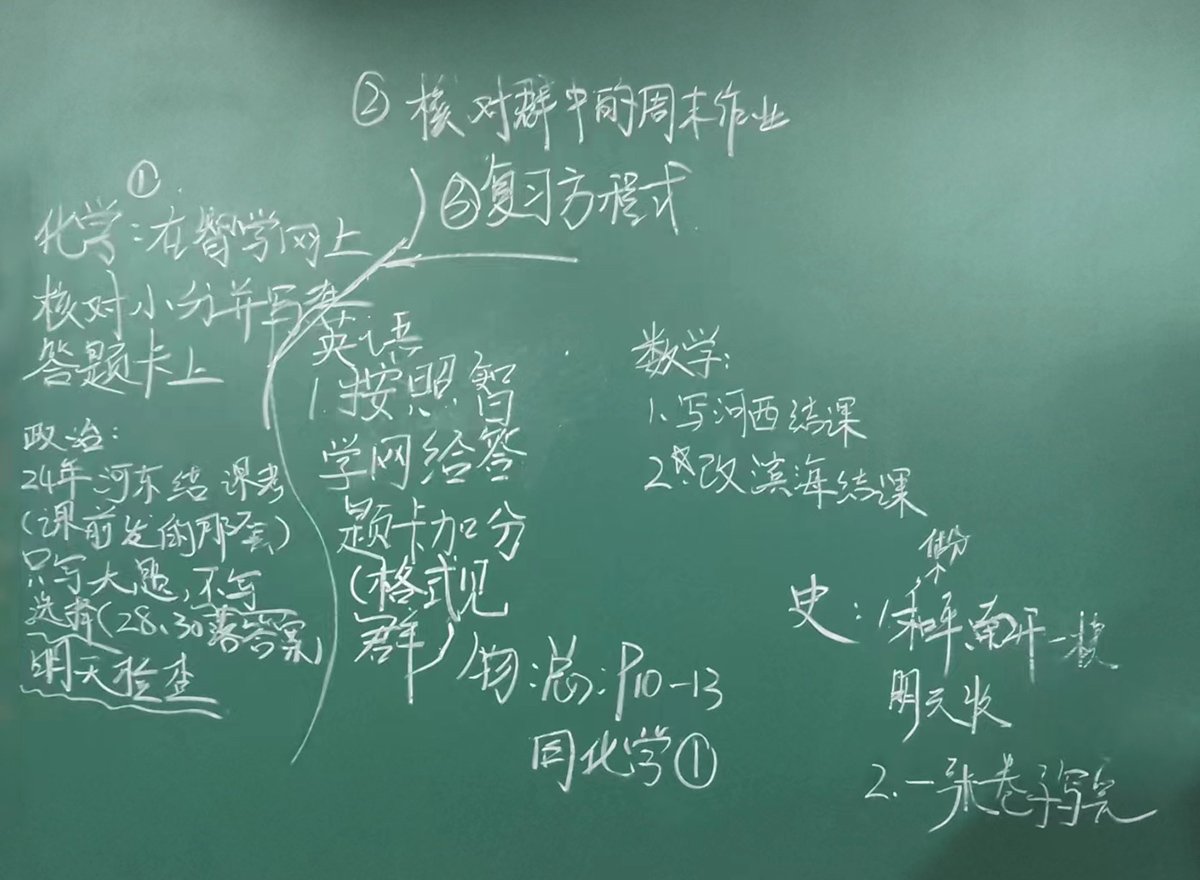 ② 核对群中的周末作业
①
③复习方程式
化学:在智学网上
核对小分并写在
答题卡上
政治:
24年河东结课考
(课前发的那套)
只写大题,不写
选择(28、30落答案)
明天检查
英语
1.按照智
学网给答
题卡加分
(格式见
群)
数学:
1.写河西结课
2.改滨海结课
物:总:P10-13
同化学①
史:1.和平南开一模
明天收
2.一张卷子写完